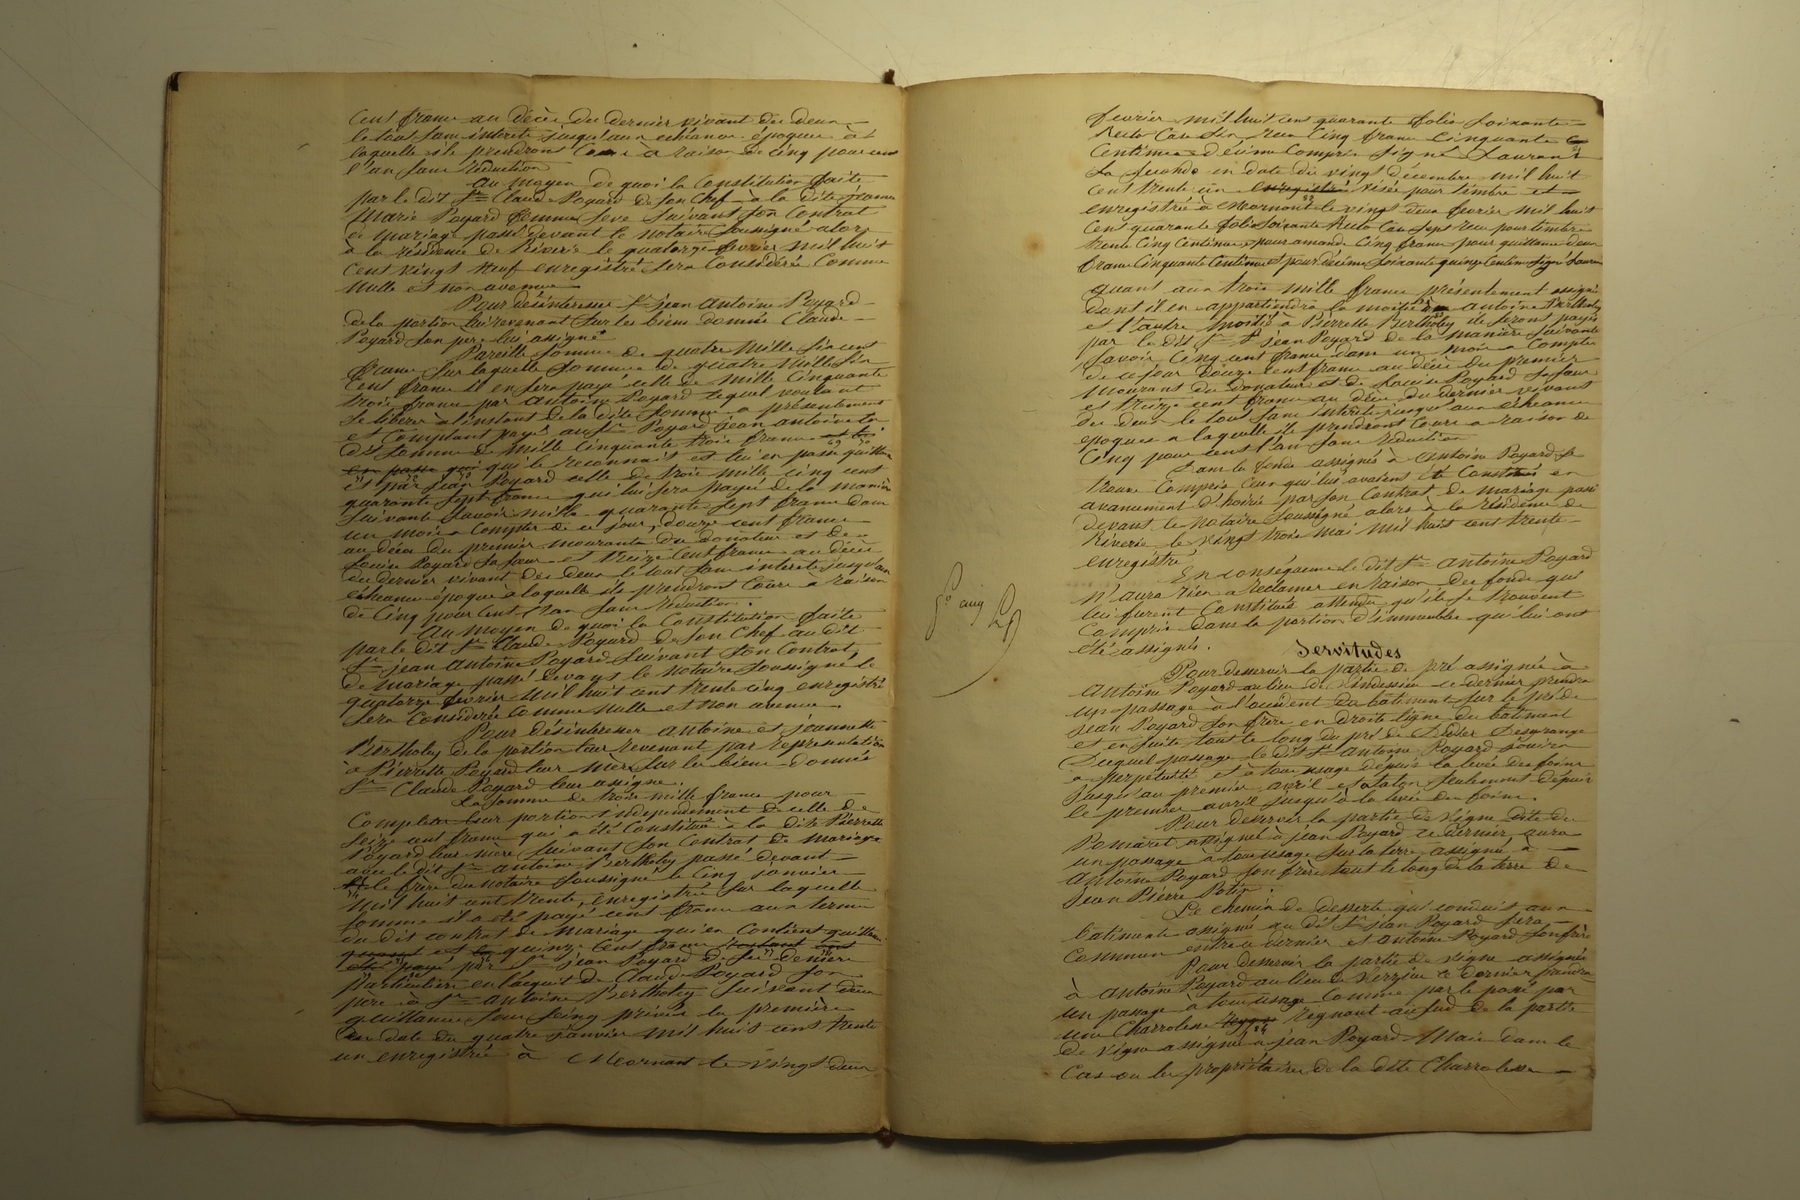 Cent francs au décès du dernier vivant des deux
le tout sans interets jusqu'aux échéances époques à
laquelle ils prendront Cours à raison de cinq pour cent
l'an sans réduction
au moyen de quoi la Constitution faite
par le dit Sr Claude Poyard de son Chef à la dite jeanne
Marie Poyard femme Seve suivant son Contrat
de mariage passé devant le notaire soussigné alors
à la résidence de Riverie le quatorze février mil huit
cent vingt neuf enregistré sera Considérée Comme
nulle et non avenue
Pour désinteresser Sr jean antoine Poyard
de la portion lui revenant sur les biens donnés Claude
Poyard son pere lui assigne
Pareille somme de quatre mille six cent
francs sur laquelle somme de quatre mille six
cent francs il en sera payé celle de mille cinquante
trois francs par antoine Poyard lequel voulant
se libérer à l'instant de la dite somme a présentement
et Comptant payé au Sr Poyard jean antoine la
dite somme de mille cinquante trois francs
qu'il le reconnait et lui en passe quittance
et par jean Poyard celle de trois mille cinq cent
quarante sept francs qui lui sera payée de la manière
suivante savoir mille quarante sept francs dans
un mois a Compter de ce jour, douze cent francs
au décès du premier mourant du donateur et de
Louise Poyard sa sœur et treize cent francs au décès
du dernier vivant des deux le tout sans interets jusqu'aux
échéances époque a laquelle ils prendront Cours a raison
de Cinq pour Cent l'an sans réduction.
Au moyen de quoi la Constitution faite
par le dit Sr Claude Poyard de son Chef au dit
Sr jean antoine Poyard suivant son Contrat
de mariage passé devant le notaire soussigné le
quatorze fevrier mil huit cent trente cinq enregistré
sera Considerée Comme nulle et non avenue.
Pour désinteresser antoine et jeannette
Bertholey de la portion leur revenant par representation
à Pierrette Poyard leur mère sur les biens donnés
Sr Claude Poyard leur assigne.
La somme de trois mille francs pour
Completer leur portion independament de celle de
seize cent francs qui a été Constituée à la dite Pierrette
Poyard leur mère suivant son Contrat de mariage
avec le dit Sr antoine Bertholey passé devant
le frère du notaire soussigné le Cinq janvier
mil huit cent trente, enregistré sur laquelle
somme il a été payé cent francs aux termes
du dit contrat de mariage qui en Contient quittance
et quinze Cent francs
payé par Sr jean Poyard de ses deniers
particuliers en l'acquit de Claude Poyard son
pere à Sr antoine Bertholey suivant deux
quittances sous seing privés la première
en date du quatre janvier mil huit cent trente
un enregistrée à Mornant le vingt deux
5e cinq
fevrier mil huit cent quarante folio soixante
recto Case six reçu Cinq francs Cinquante
Centimes décime Compris signé Laurant
La seconde en date du vingt décembre mil huit
cent trente un visée pour timbre et
enregistrée à Mornant le vingt deux fevrier mil huit
Cent quarante folio soixante recto Case sept reçu pour timbre
trente Cinq Centimes pour amande Cinq francs pour quittance deux
francs Cinquante Centimes et pour décime soixante quinze Centimes signé Laurant
quant aux trois mille francs présentement assignés
dont il en appartiendra la moitié à antoine Bertholey
et l'autre moitié à Pierrette Bertholey ils seront payés
par le dit Sr jean Poyard de la manière suivante
savoir Cinq cent francs dans un mois a Compter
de ce jour Douze Cent francs au décès du premier
mourant du donateur et de Louise Poyard sa sœur
et treize cent francs au décès du dernier vivant
des deux le tout sans interets jusqu'aux échéances
époques a laquelle ils prendront Cours a raison de
Cinq pour cent l'an sans réduction
Dans les fonds assignés à Antoine Poyard se
trouve Compris Ceux qui lui avaient été Constitués en
avancement d'hoirie par son Contrat de mariage passé
devant le notaire soussigné alors à la résidence de
Riverie le vingt trois mai mil huit cent trente
enregistré
En conséquence le dit Sr antoine Poyard
n'aura rien a réclamer en raison des fonds qui
lui furent Constitués attendu qu'ils se trouvent
Compris dans la portion d'immeubles qui lui ont
été assignés.
Servitudes
Pour desservir la partie de pré assignée à
Antoine Poyard au lieu de ce dernier prendra
un passage à l'occident du batiment sur le pré de
jean Poyard son frère en droite ligne du batiment
et en suite tout le long du pré de Didier Desgrange
Duquel passage le dit Sr antoine Poyard jouira
a perpétuité et à tous usage depuis la levée des foins
jusqu'au premier avril et a talon seulement depuis
le premier avril jusqu'à la levée des foins.
Pour desservir la partie de vigne dite du
Pomaret assignée à jean Poyard ce dernier aura
un passage à tous usage sur la terre assignée à
Antoine Poyard son frère tout le long de la terre de
Jean Pierre Potin.
Le chemin de desserte qui conduit aux
batiments assignés au dit Sr jean Poyard sera
Commun entre ce dernier et antoine Poyard son frère
Pour desservir la partie de vigne assignée
à antoine Poyard au lieu de Verzieu ce dernier prendra
un passage à tous usage Comme par le passé par
une Charrolesse regnant au sud de la partie
de vigne assignée a jean Poyard Mais dans le
Cas ou les propriétaires de la dite Charrolesse